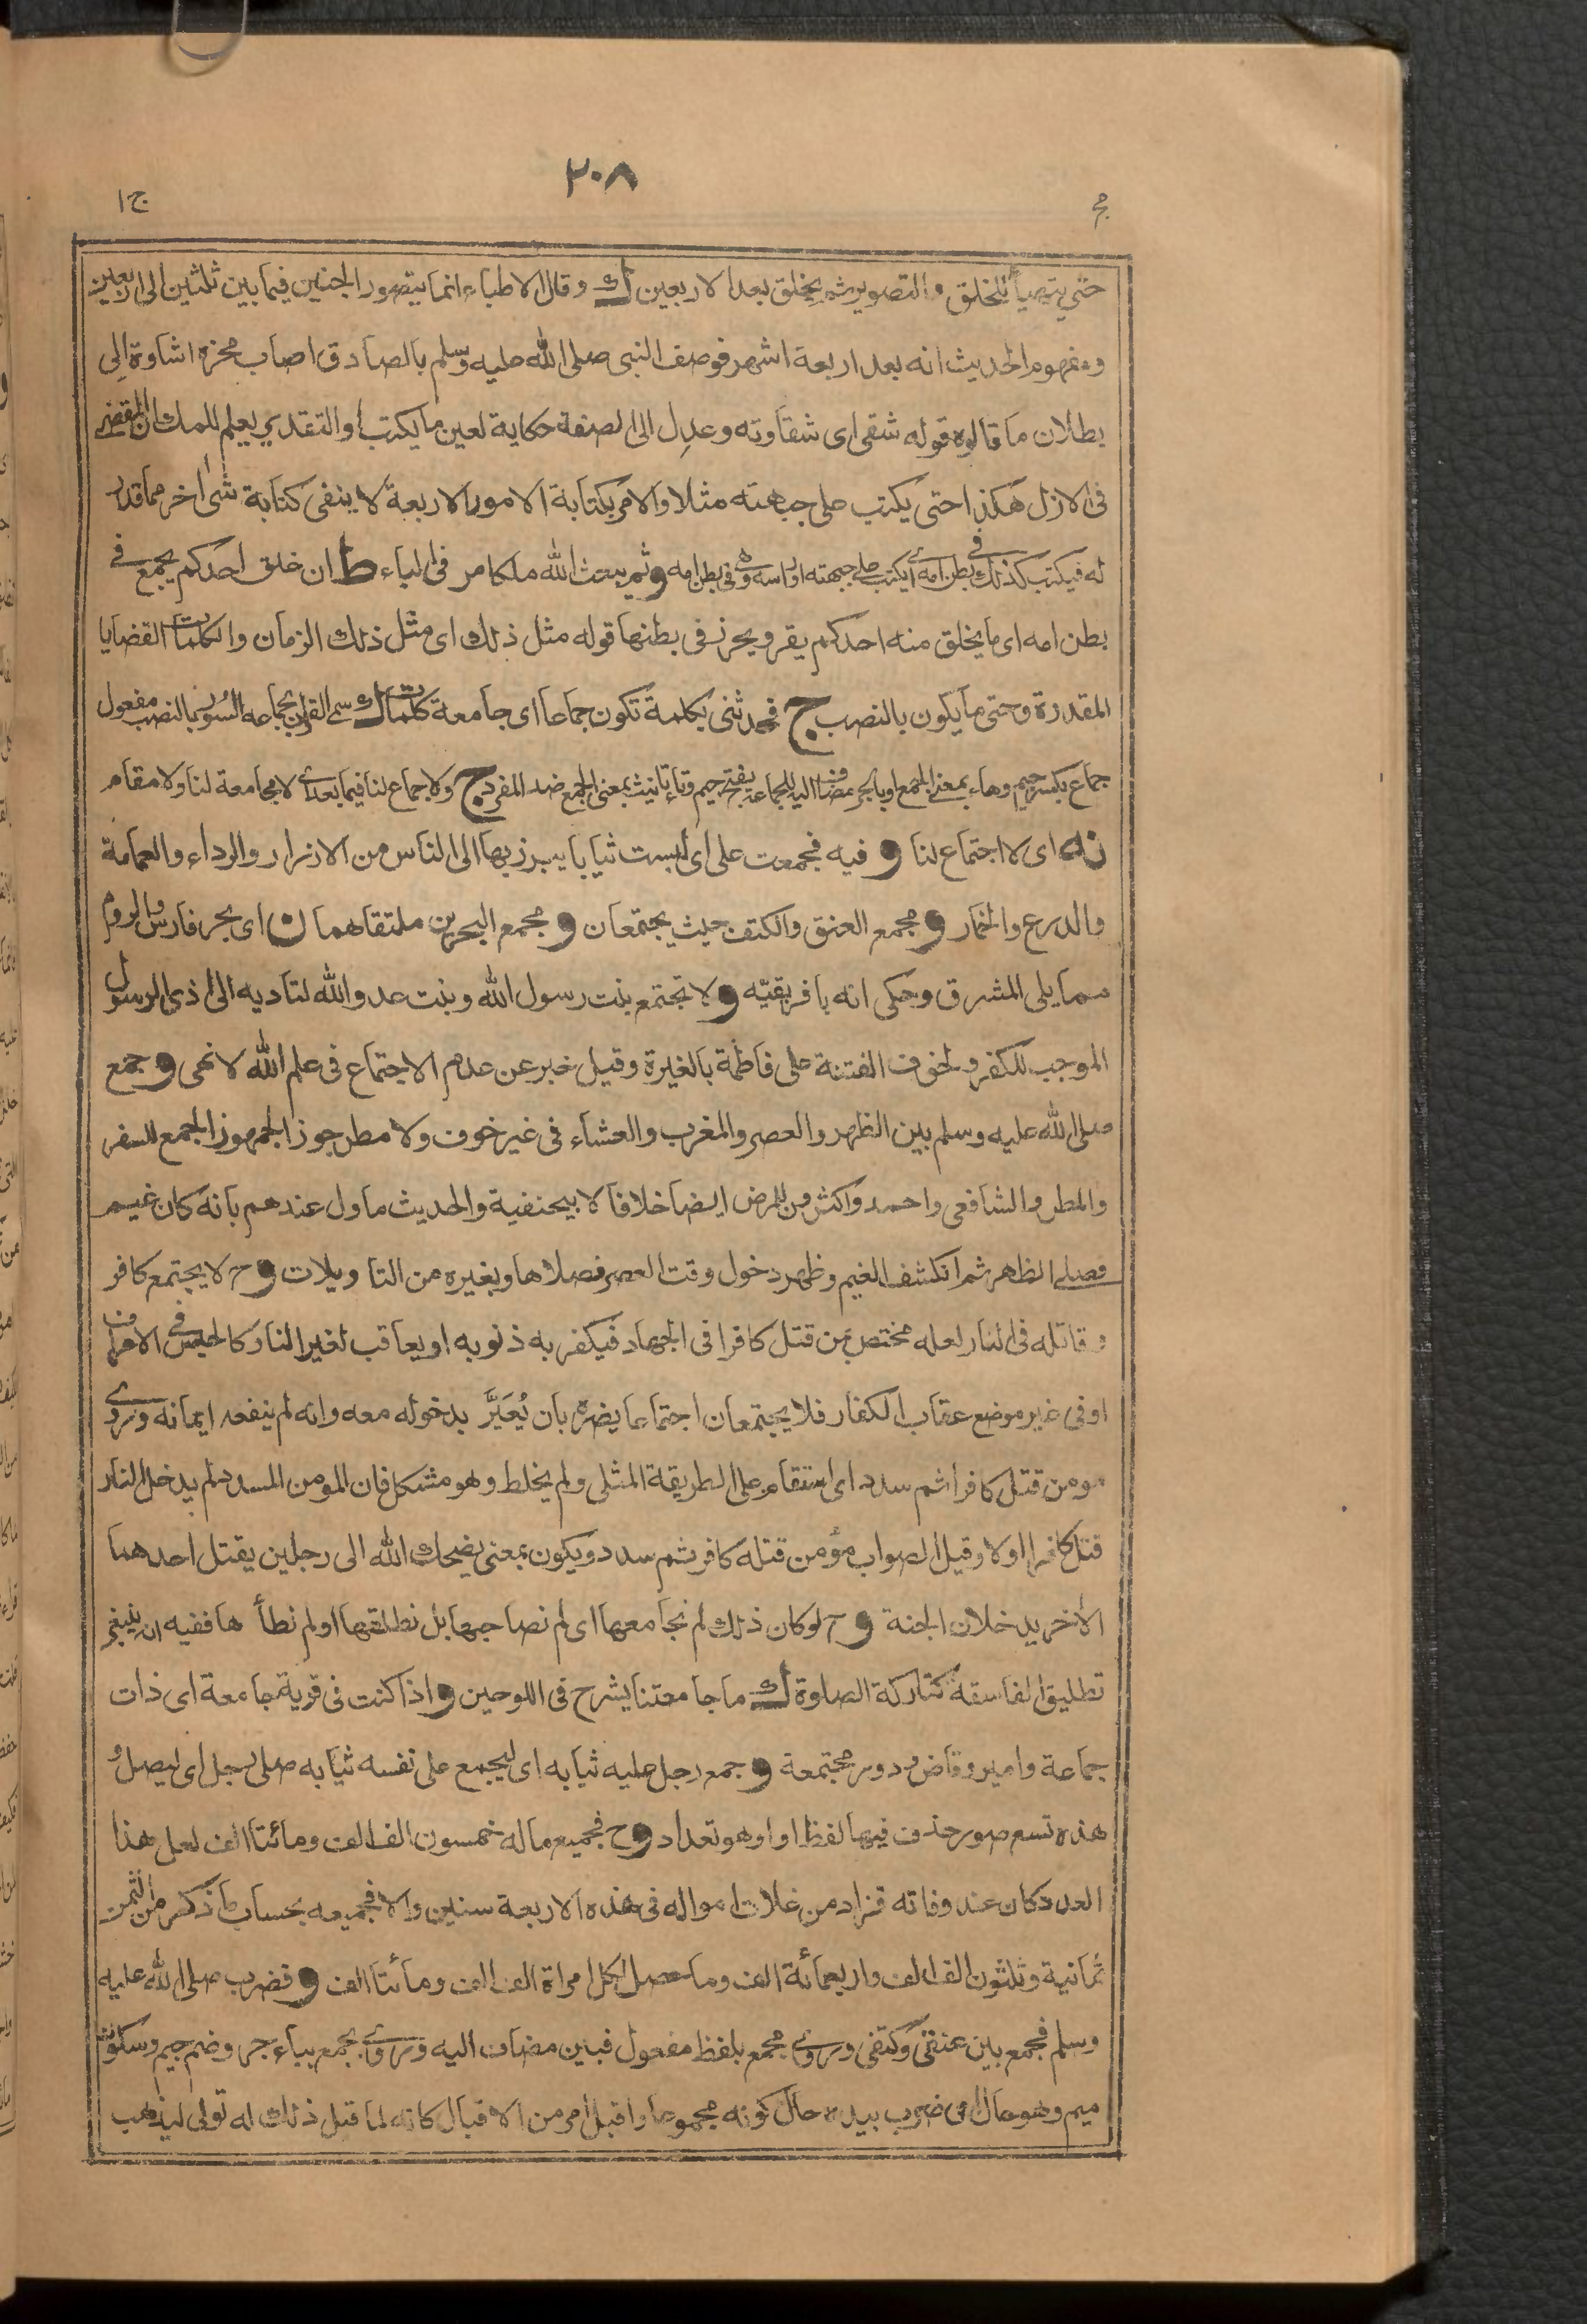 ٢٠٨
مج
ج ١
حتى يتهيأ للخلق والتصوير ثم يخلق بعد الاربعين ك وقال الاطباء انما يتصور الجنين فيما بين ثلثين الى اربعين
ومفهوم الحديث انه بعد اربعة اشهر فوصف النبى صلى الله عليه وسلم بالصادق اصاب محزه اشاوة الى
بطلان ما قالوه قوله شقى اى شقاوته وعدل الى الصفة حكاية لعين ما يكتب أو التقدير يعلم للملك ان المقضى
فى الازل هكذا حتى يكتب على جبهته مثلا والامر بكتابة الامور الاربعة لا ينفى كتابة شئ اخر مما قدر
له فيكتب كذلك فى بطن امه اى يكتب على جبهته او راسه وهو فى بطن امه و ثم يبعث الله ملكا مر فى الباء ط ان خلق احدكم يجمع فى
بطن امه اى ما يخلق منه احدكم يقر ويحرز فى بطنها قوله مثل ذلك اى مثل ذلك الزمان والكلمات القضايا
المقدرة وحتى ما يكون بالنصب ج فحدثنى بكلمة تكون جماعا اى جامعة كلمات ك سمى القران بجماعه السور بالنصب مفعول
جماع بكسر جيم وهاء بمعنى الجمع او بالجر مضاف اليه للجماعة بفتح جيم وتاء تانيث بمعنى الجمع ضد المفرد ج ولا جماع لنا فيما بعد اى لا مجامعة لنا ولا مقام
نه اى لا اجتماع لنا و فيه فجمعت على اى لبست ثيابا يبرز بها الى الناس من الازرار والرداء والعمامة
والدرع والخمار و مجمع العنق والكتف حيث يجتمعان و مجمع البحرين ملتقاهما ن اى بحر فارس والروم
مما يلى المشرق وحكى انه بافريقيه و لا تجتمع بنت رسول الله وبنت عدو الله لتاديه الى اذى الرسول
الموجب للكفر ولخوف الفتنة على فاطمة بالغيرة وقيل خبر عن عدم الاجتماع فى علم الله لا نهى و جمع
صلى الله عليه وسلم بين الظهر والعصر والمغرب والعشاء فى غير خوف ولا مطر جوز الجمهوز الجمع للسفر
والمطر والشافعى واحمد واكثرون للمرض ايضا خلافا لابيحنفية والحديث ماول عندهم بانه كان غيم
فصلى الظاهر ثم انكشف الغيم وظهر دخول وقت العصر فصلاها وبغيره من التاويلات و ح لا يجتمع كافر
وقاتله فى النار لعله مختص بمن قتل كافرا فى الجهاد فيكفر به ذنوبه او يعاقب لغير النار كالحبس فى الاعراف
او فى غير موضع عقاب الكفار فلا يجتمعان اجتماعا يضره بان يُعَيَّر بدخوله معه وانه لم ينفعه ايمانه وروى
مومن قتل كافرا ثم سدد اى استقام على الطريقة المثلى ولم يخلط وهو مشكل فان المومن المسدد لم يدخل النار
قتل كافرا اولا وقيل الصواب مؤمن قتله كافر ثم سدد ويكون بمعنى يضحك الله الى رجلين يقتل احدهما
الاخر يدخلان الجنة و ح لو كان ذلك لم نجامعها اى لم نصاحبها بل نطلقها او لم نطأ ها ففيه انه ينبغى
تطليق الفاسقة كتاركة الصلوة ك ما جامعتنا يشرح فى اللوحين و اذا كنت فى قرية جامعة اى ذات
جماعة وامير وقاض ودور مجتمعة و جمع رجل عليه ثيابه اى ليجمع على نفسه ثيابه صلى رجل اى ليصل و
هذه تسع صور حذف فيها لفظ او او هو تعداد و ح فجميع ماله خمسون الف الف ومائتا الف لعل هذا
العدد كان عند وفاته فزاد من غلات امواله فى هذه الاربعة سنين والا فجميعه بحساب ما ذكر من الثمن
ثمانية وثلثون الف الف واربعمائة الف وما حصل لكل امراة الف الف ومائتا الف و فضرب صلى الله عليه
وسلم فجمع بين عنقى وكتفى وروى مجمع بلفظ مفعول فبين مضاف اليه وروى بجمع بباء جر وضم جيم وسكون
ميم وهو حال اى ضرب بيده حال كونه مجموعا واقبل امر من الاقبال كانه لما قتل ذلك له تولى ليذهب